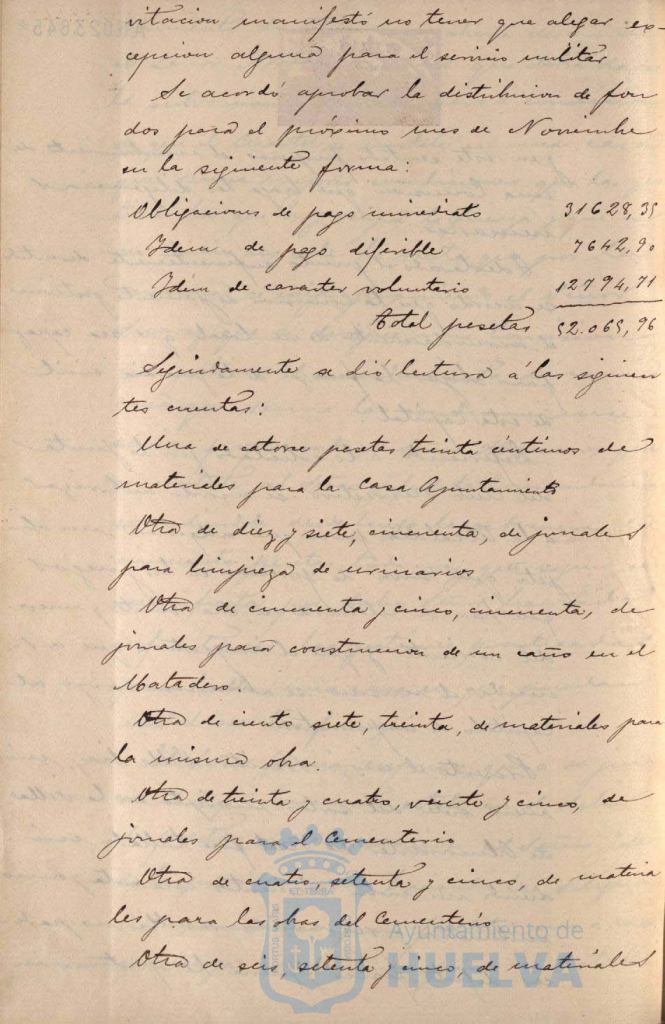 vitacion manifestó no tener que alegar ex-
cepcion alguna para el servicio militar
Se acordó aprobar la distribucion de fon
dos para el próximo mes de Noviembre
en la siguiente forma:
Obligaciones de pago inmediato 31628,35
Idem de pago diferible 7642,90
Idem de caracter voluntario 12794,71
Total pesetas 52.065,96
Seguidamente se dió lectura á las siguien
tes cuentas:
Una de catorce pesetas treinta céntimos de
materiales para la Casa Ayuntamiento
Otra de diez y siete, cincuenta, de jornales
para limpieza de urinarios
Otra de cincuenta y cinco, cincuenta, de
jornales para construccion de un caño en el
Matadero.
Otra de ciento siete, treinta, de materiales para
la misma obra.
Otra de treinta y cuatro, veinte y cinco, de
jornales para el Cementerio
Otra de cuatro, setenta y cinco, de materia
les para las obras del Cementerio
Otra de seis, setenta y cinco, de materiales
Ayuntamiento de
HUELVA